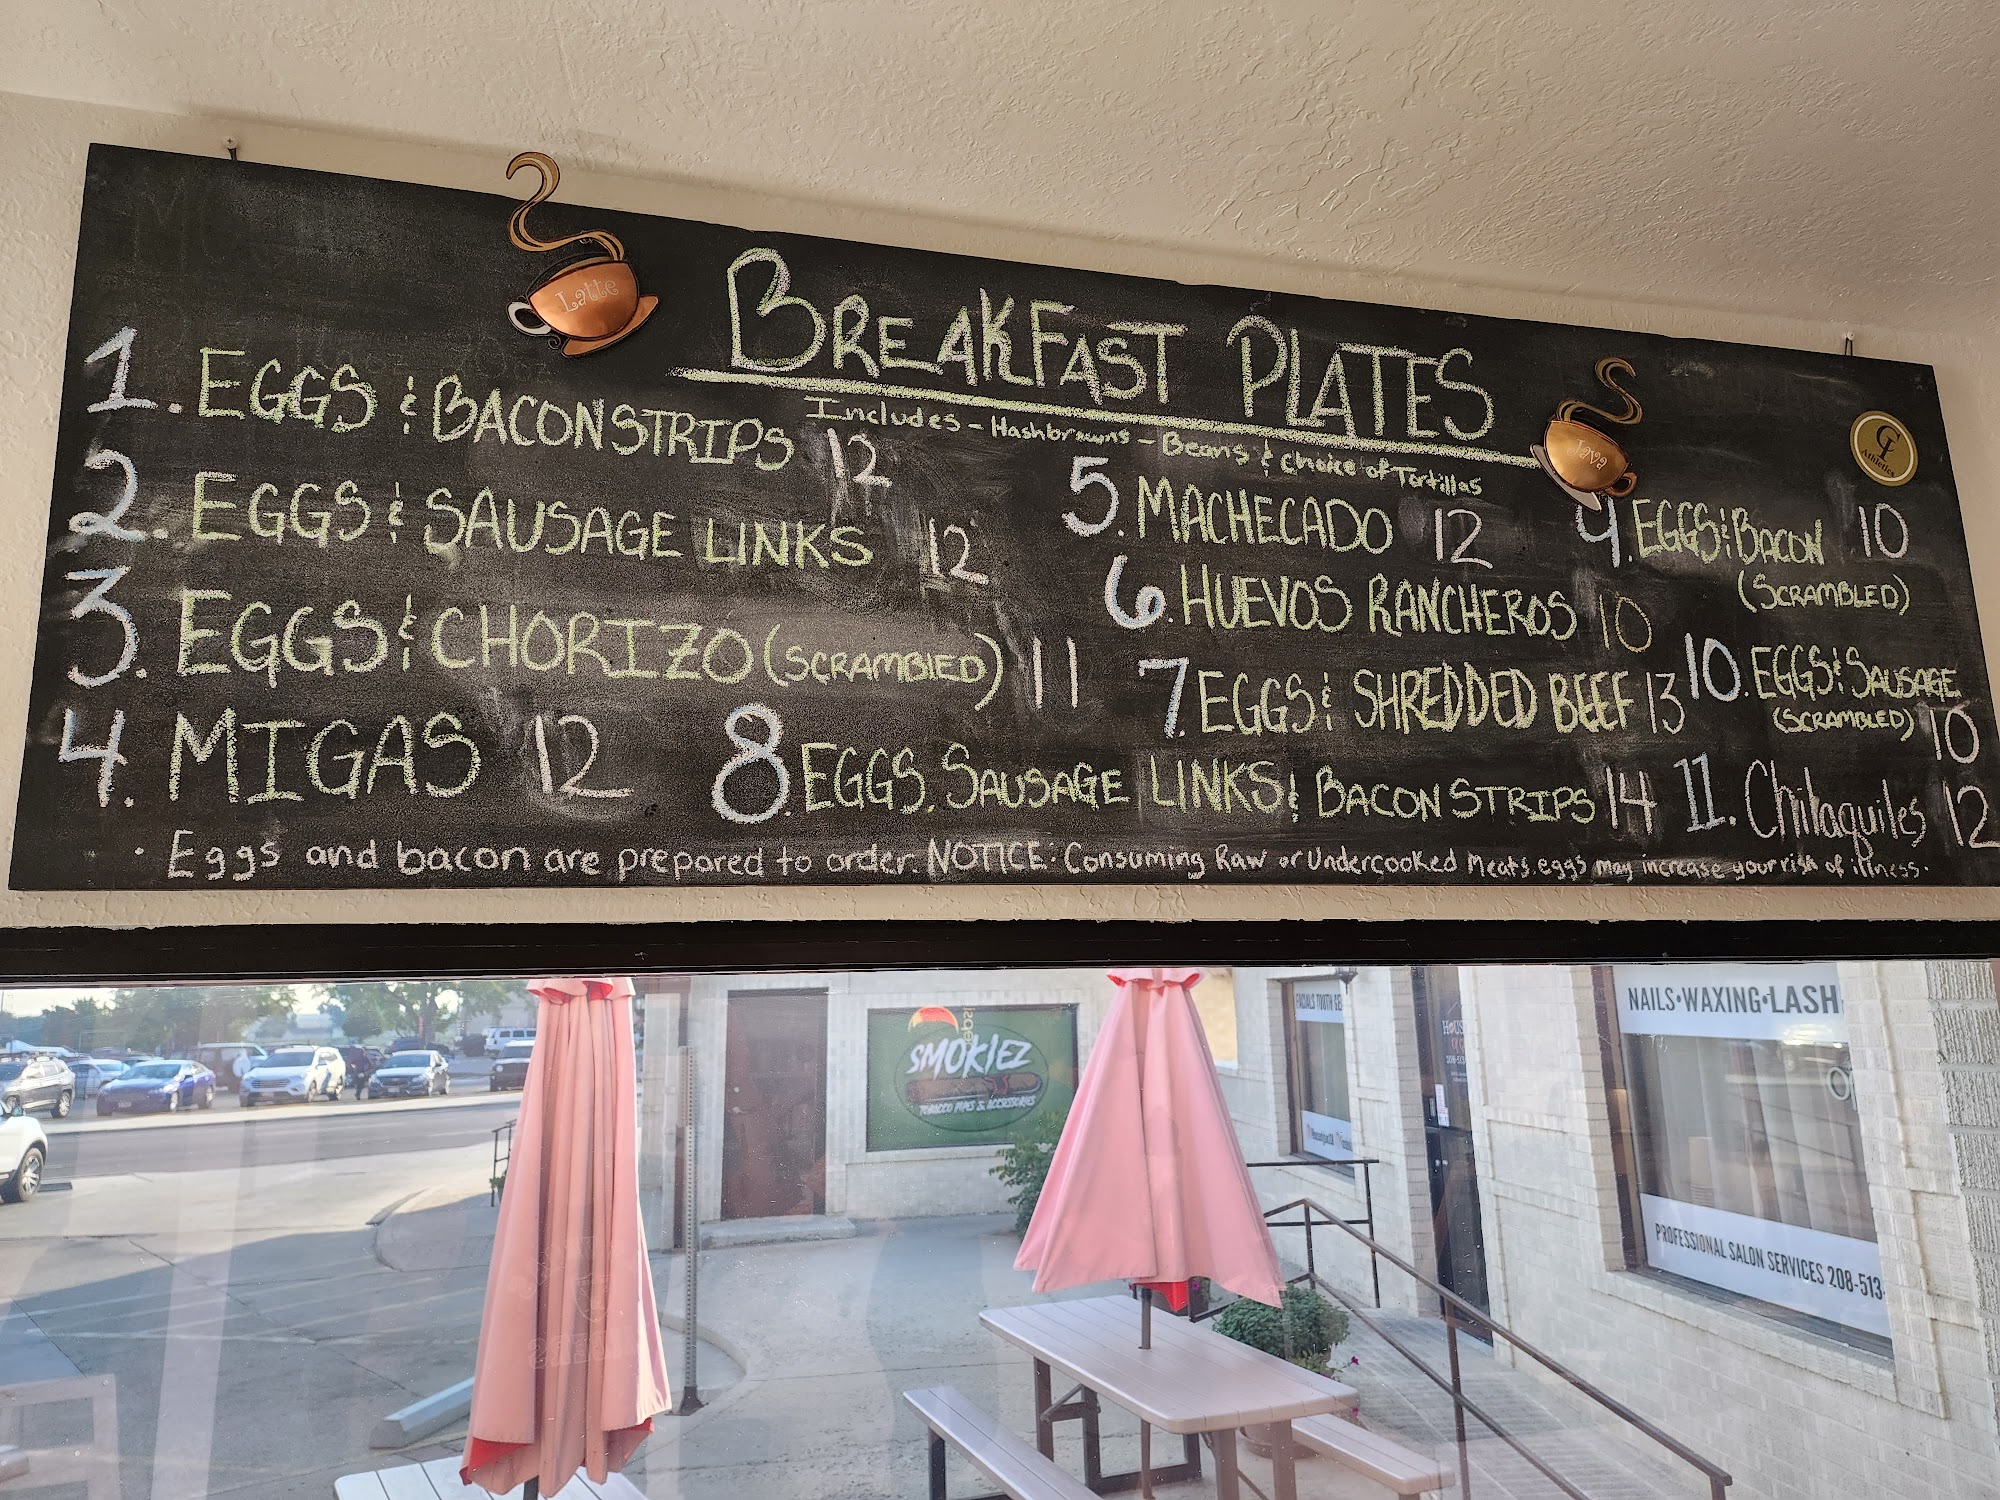 Latte
BREAKFAST PLATES
Includes - Hashbrowns - Beans & Choice of Tortillas
Java
CI
Athletics
1. EGGS & BACON STRIPS 12
2. EGGS & SAUSAGE LINKS 12
3. EGGS & CHORIZO (SCRAMBLED) 11
4. MIGAS 12
5. MACHECADO 12
6. HUEVOS RANCHEROS 10
7. EGGS & SHREDDED BEEF 13
8. EGGS, SAUSAGE LINKS & BACON STRIPS 14
9. EGGS & BACON 10
(SCRAMBLED)
10. EGGS & SAUSAGE
(SCRAMBLED) 10
11. Chilaquiles 12
• Eggs and bacon are prepared to order. NOTICE: Consuming Raw or Undercooked Meats, eggs may increase your risk of illness.
SMOKIEZ
TOBACCO PIPES & ACCESSORIES
NAILS • WAXING • LASH
PROFESSIONAL SALON SERVICES 208-513-